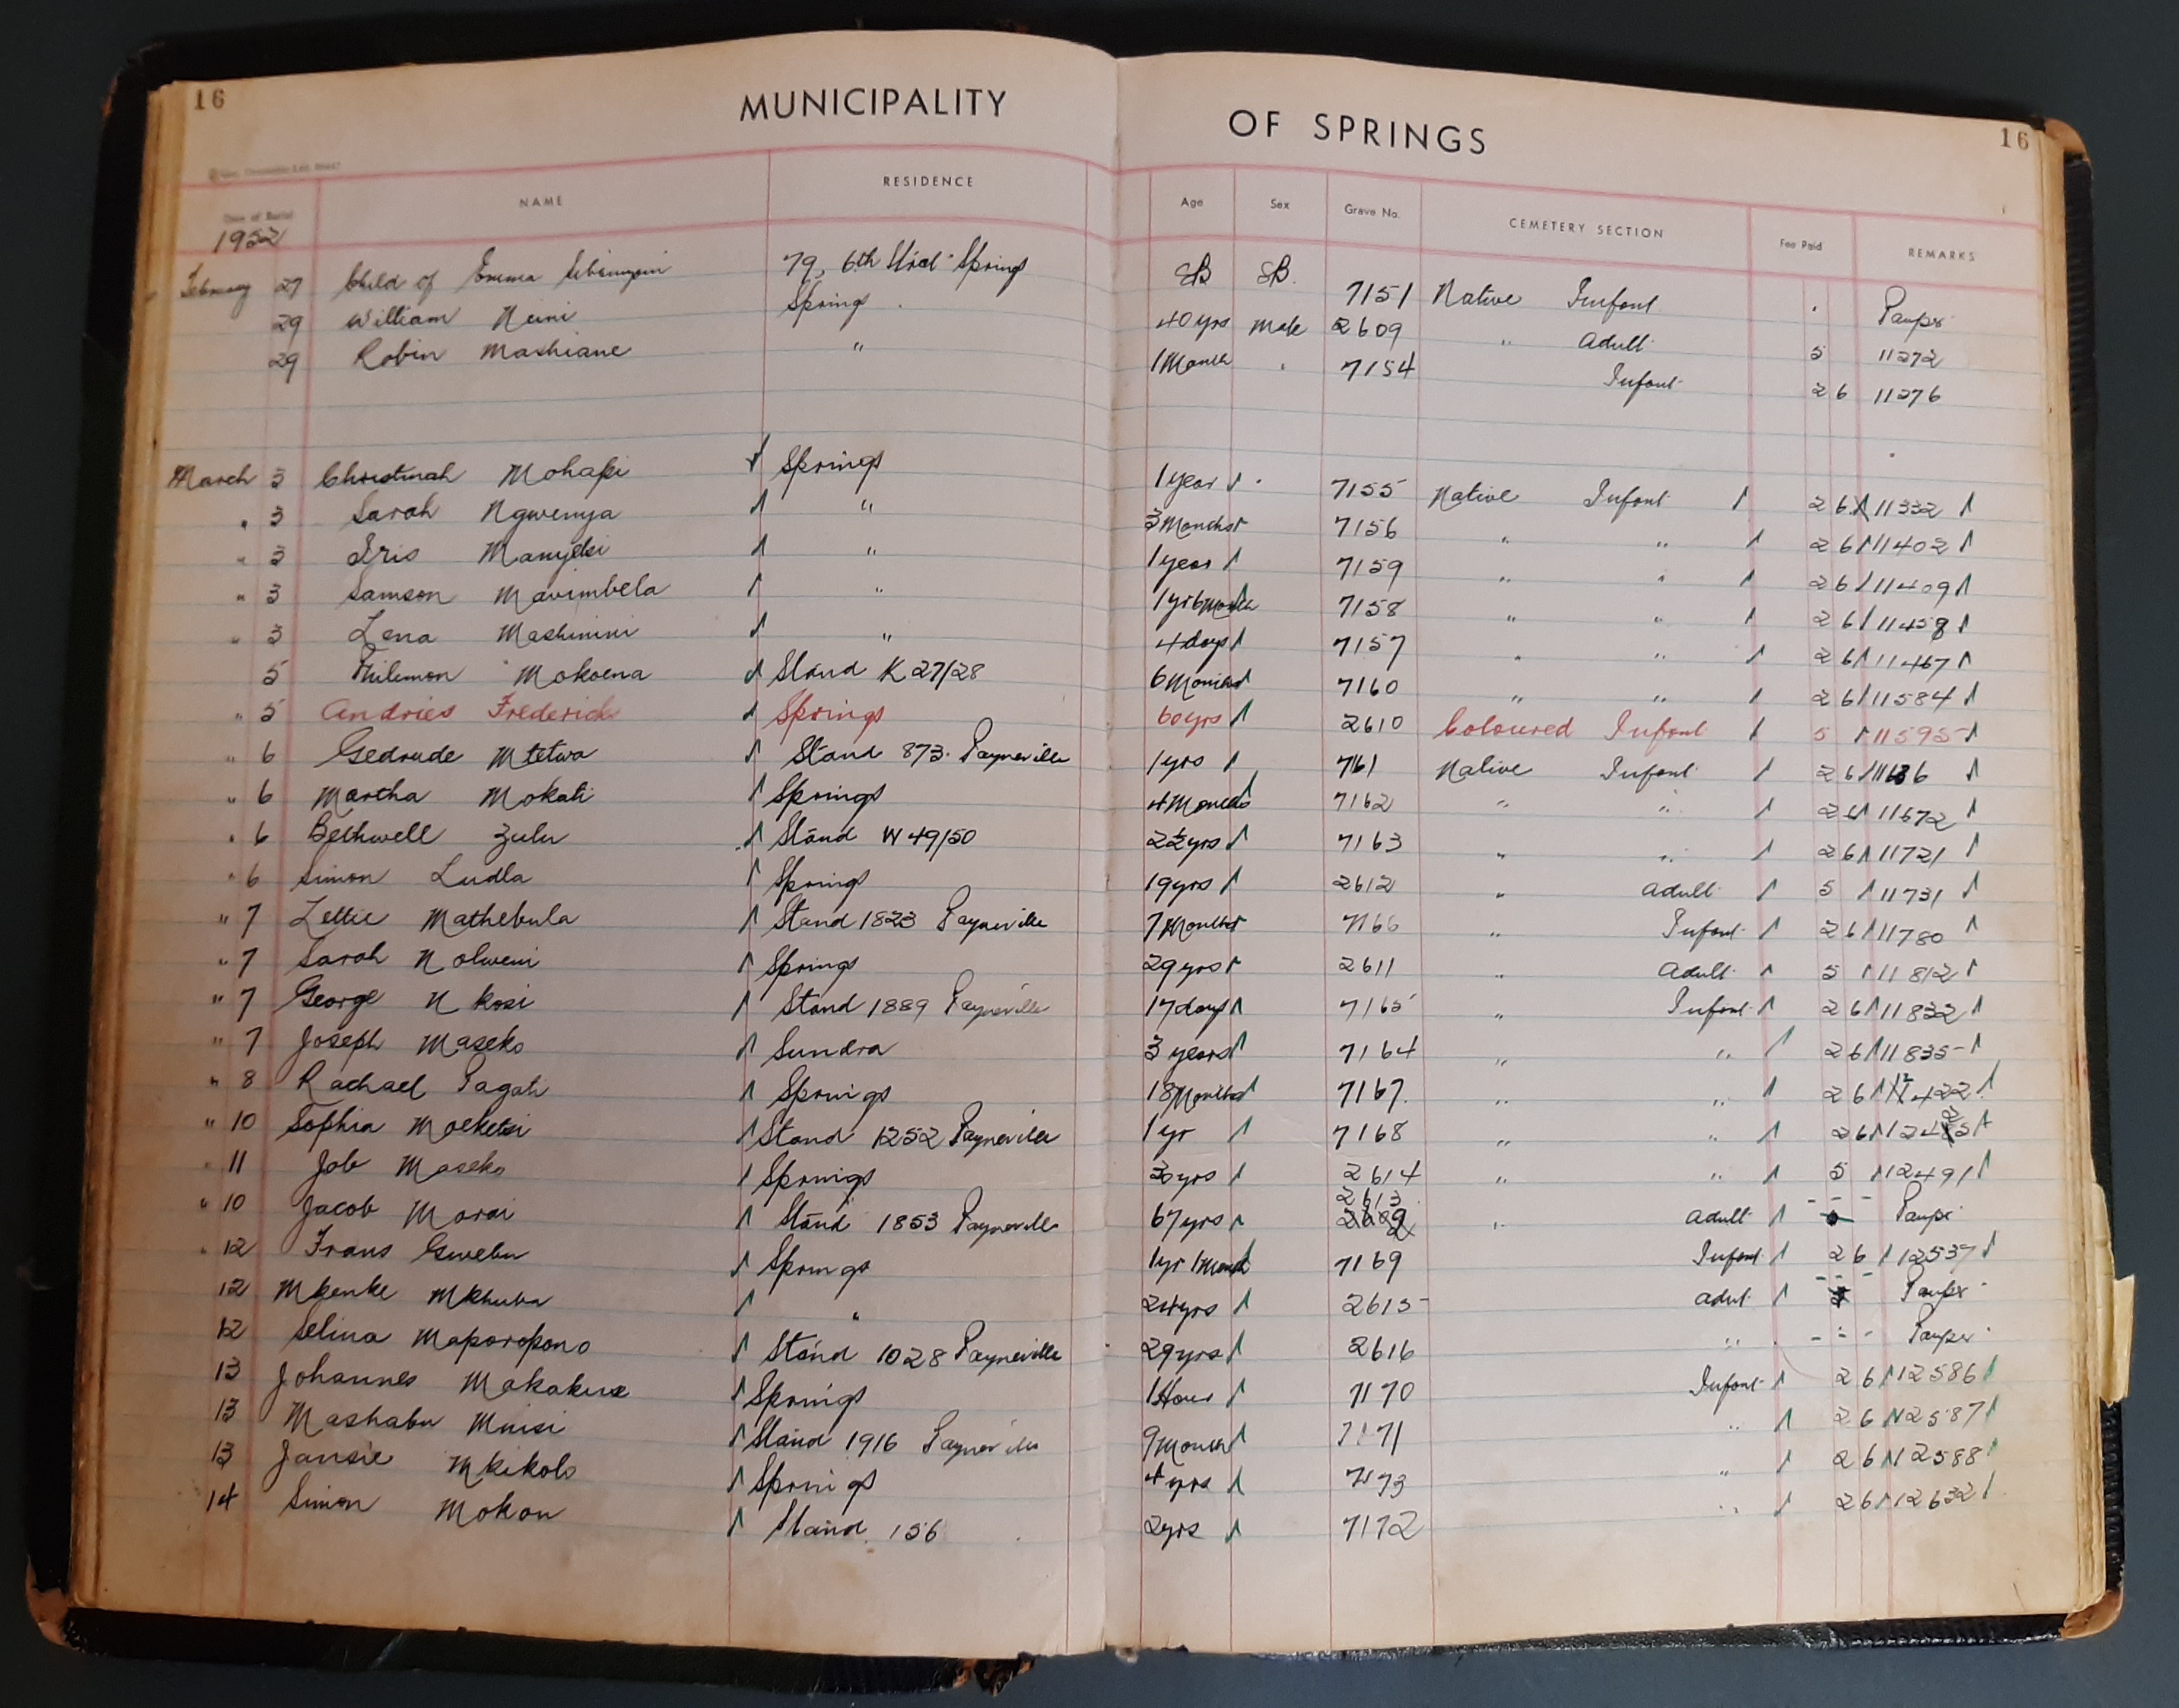 16 MUNICIPALITY OF SPRINGS 16
Date of Burial NAME RESIDENCE Age Sex Grave No. CEMETERY SECTION Fee Paid REMARKS
1952
February 27 Child of Emma 79, 6th Springs SB SB. 7151 Native Infant Pauper
29 William Spring 40 yrs Male 2609 " Adult 5 11272
29 Robin Mashiane " 1 Month 7154 Infant 2 6 11276
March 3 Christinah Mohapi Springs 1 year 7155 Native Infant 2 6 11332
" 3 Sarah Ngwenya " 3 Months 7156 " " 2 6 11402
" 3 Iris " 1 year 7159 " " 2 6 11409
" 3 Samson Mavimbela " 1 yr 6 Months 7158 " " 2 6
" 3 Lena Mashinini " 4 days 7157 " " 2 6 11467
5 Philemon Mokoena Stand K 27/28 6 Months 7160 " " 2 6 11584
" 5 Andries Frederick Springs 60 yrs 2610 Coloured Infant 5 11595
" 6 Gedrude Mtetwa Stand 873. Payneville 1 yrs 7161 Native Infant 2 6
" 6 Martha Mokati Springs 4 Months 7162 " " 2 6 11672
" 6 Bethwell Zulu Stand W 49/50 2½ yrs 7163 " " 2 6 11721
" 6 Simon Ludla Springs 19 yrs 2612 " Adult 5 11731
" 7 Lettie Mathebula Stand 1823 Payneville 7 Months 7166 " Infant 2 6 11780
" 7 Sarah Nolweni Springs 29 yrs 2611 " Adult 5 11812
" 7 George Nkosi Stand 1889 Payneville 17 days 7165 " Infant 2 6 11832
" 7 Joseph Maseko Sundra 3 years 7164 " " 2 6 11835
" 8 Rachael Pagati Springs 18 Months 7167. " " 2 6 12422
" 10 Sophia Moeketsi Stand 1252 Payneville 1 yr 7168 " " 2 6
" 11 Job Maseko Springs yrs 2614 " " 5 12491
" 10 Jacob Morai Stand 1853 Payneville 67 yrs 2613 " Adult - - - Pauper
" 12 Frans Gwebu Springs 1 yr 1 Month 7169 Infant 2 6 12537
12 Mkenke Mkhuba " 24 yrs 2615 Adult - - - Pauper
12 Selina Maporopono Stand 1028 Payneville 29 yrs 2616 " - - - Pauper
13 Johannes Springs 1 Hour 7170 Infant 2 6 12586
13 Mashabu Mnisi Stand 1916 Payneville 9 Months 7171 " 2 6 12587
13 Jansie Mkikolo Springs 4 yrs 7173 " 2 6 12588
14 Simon Mokou Stand 156 2 yrs 7172 " 2 6 12632